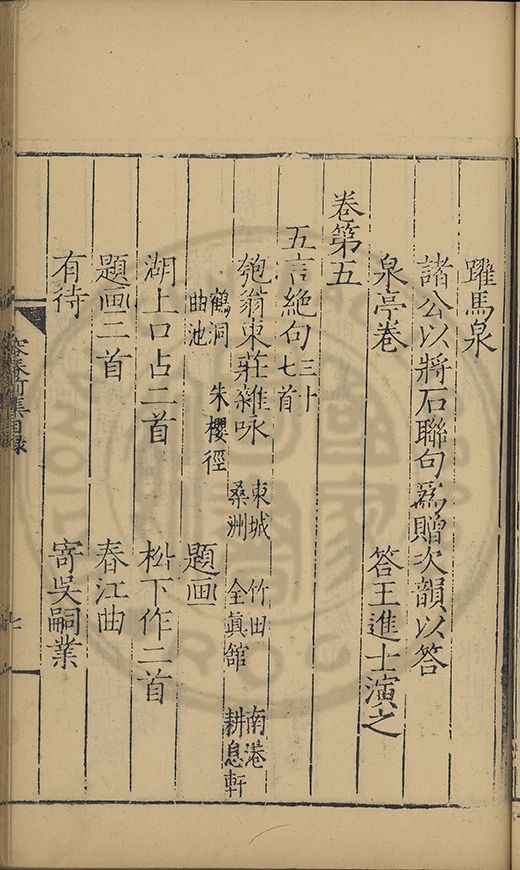 躍馬泉
諸公以將石聯句爲贈次韻以答
泉亭卷　答王進士演之
卷第五
五言絶句三十七首
匏翁東莊雜咏　東城　竹田　南港　桑洲　全眞舘　耕息軒
鶴洞　朱櫻徑　曲池　題画
湖上口占二首　松下作二首
題画二首　春江曲
有待　寄吳嗣業
集目録
七